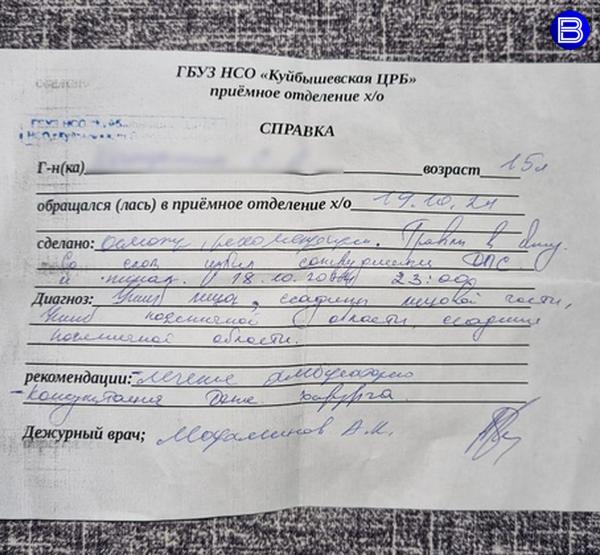 B
ГБУЗ НСО «Куйбышевская ЦРБ»
приёмное отделение х/о
ГБУЗ НСО
СПРАВКА
Г-н(ка) возраст 15л
обращался (лась) в приёмное отделение х/о 19.10.24
сделано: осмотр, рекомендации. Травма в быту.
Со слов избил сотрудник ДПС
и 18.10. 23:00
Диагноз: Ушиб лица, ссадины лицевой части,
Ушиб поясничной области, ссадины
поясничной области.
рекомендации: -лечение амбулаторно
-консультация хирурга.
Дежурный врач; А.К.